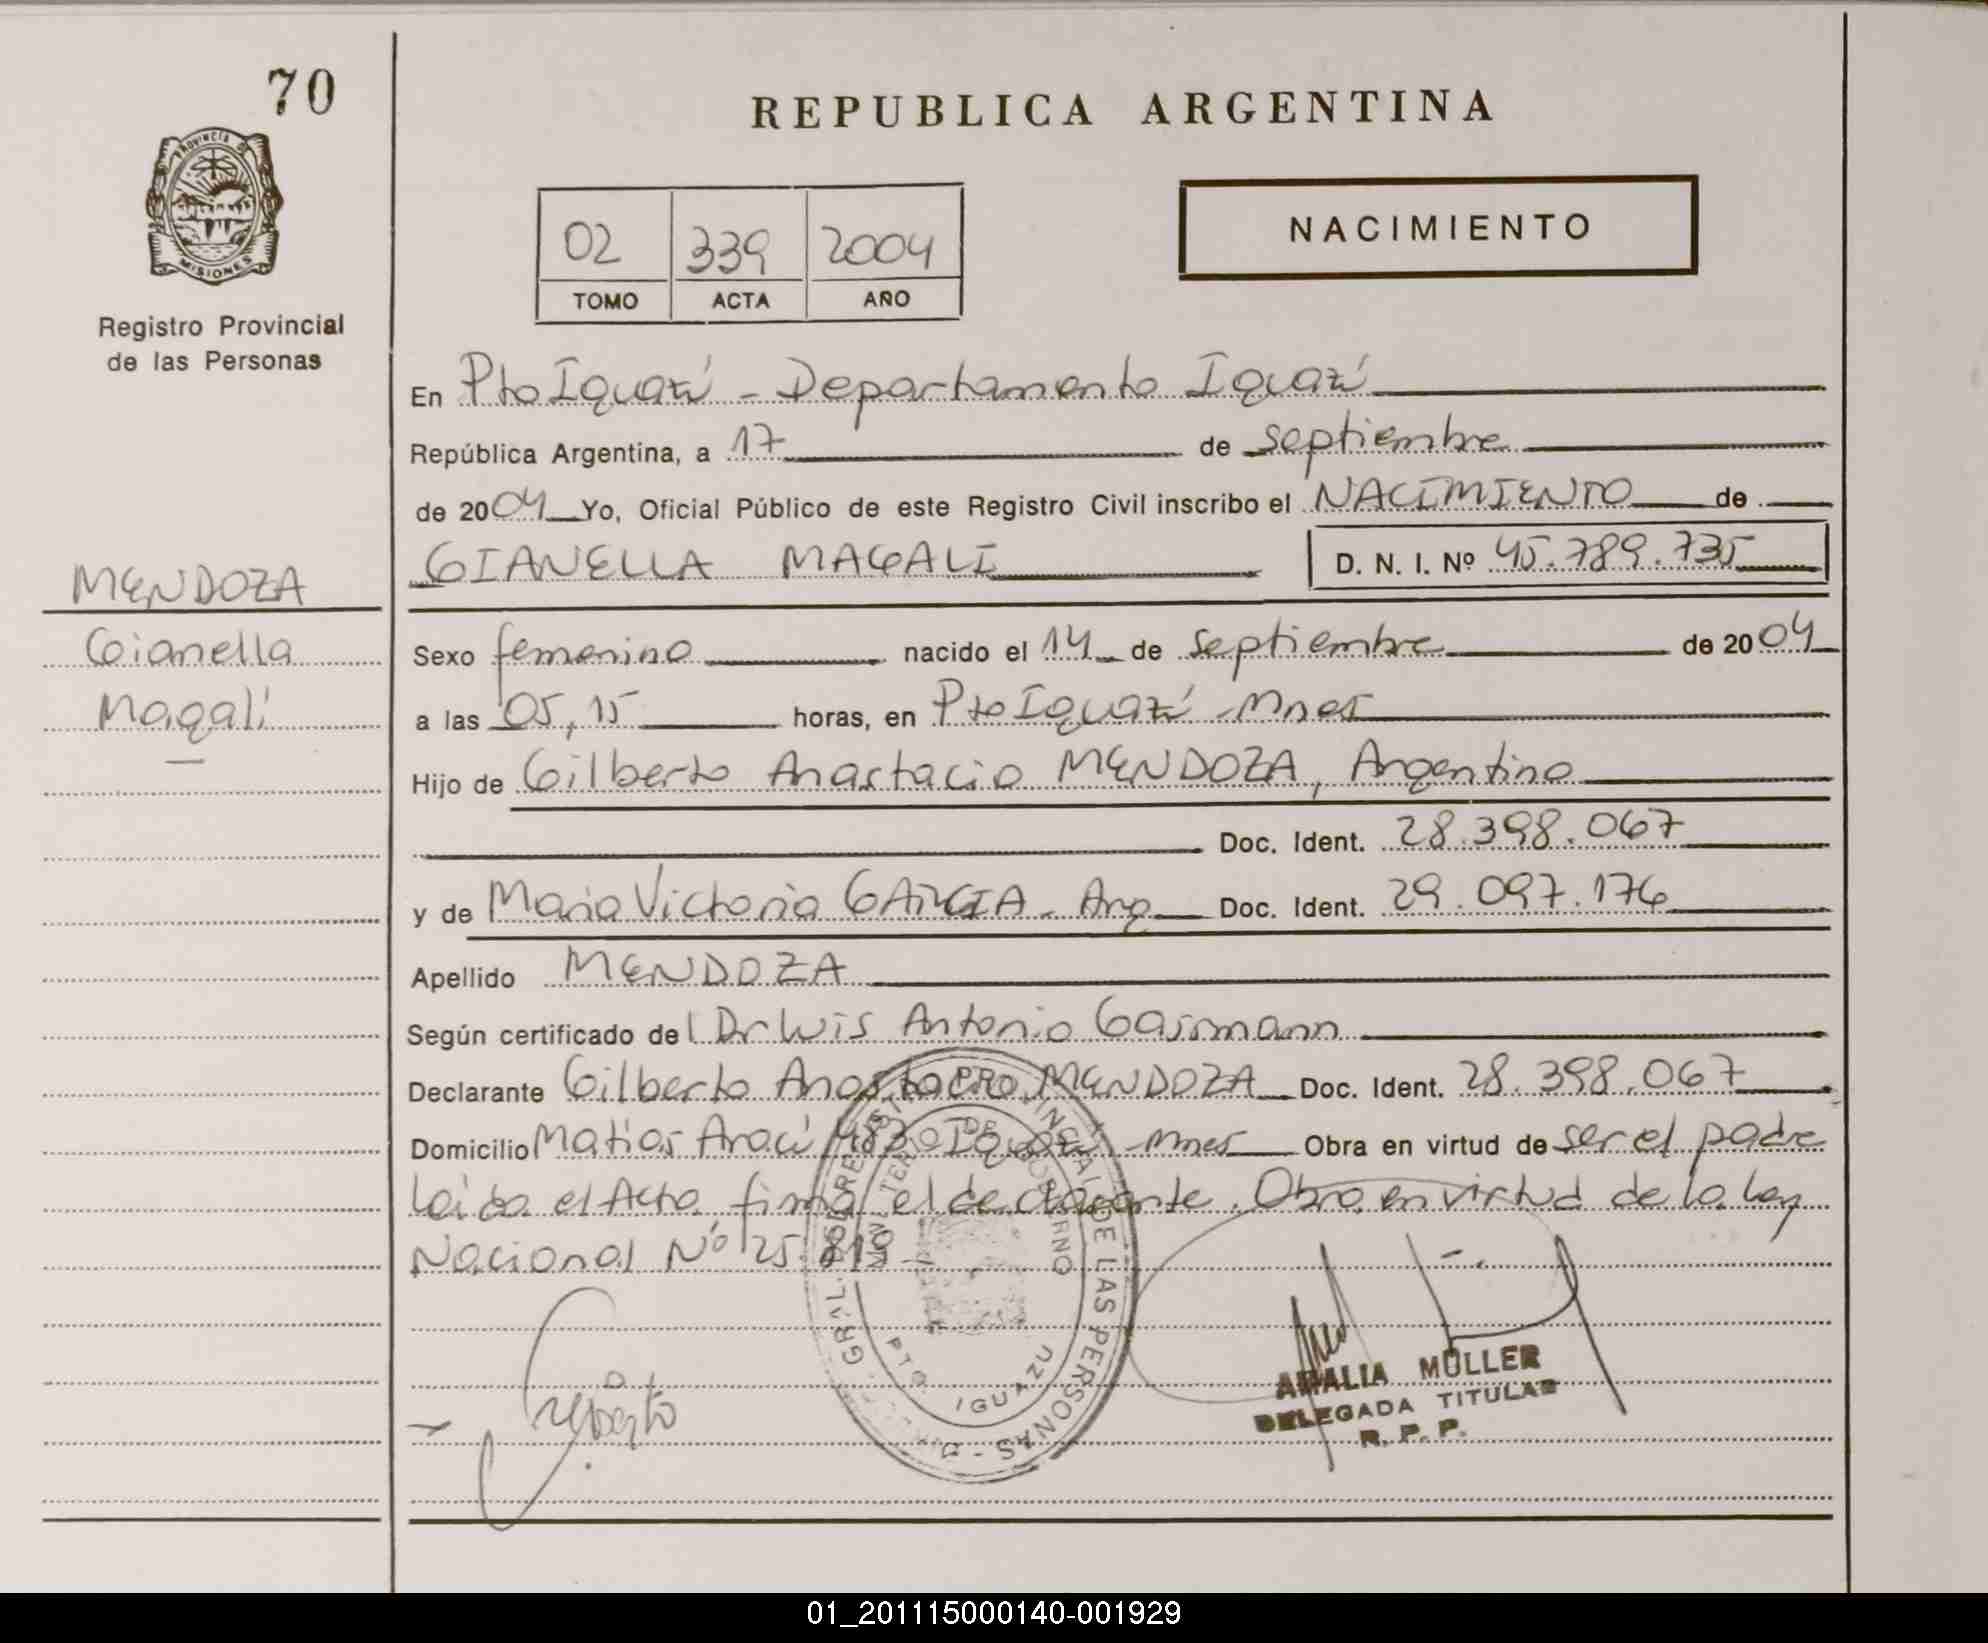 70
REPUBLICA ARGENTINA
PROVINCIA DE
MISIONES
Registro Provincial
de las Personas
02 339 2004
TOMO ACTA AÑO
NACIMIENTO
En Pto Iguazú - Departamento Iguazú
República Argentina, a 17 de septiembre
de 2004 Yo, Oficial Público de este Registro Civil inscribo el NACIMIENTO de
GIANELLA MAGALI D. N. I. Nº 45.789.735
MENDOZA
Gianella
Magalí
Sexo femenino nacido el 14 de septiembre de 2004
a las 05,15 horas, en Pto Iguazú - Mnes
Hijo de Gilberto Anastacio MENDOZA, Argentino
Doc. Ident. 28.398.067
y de Maria Victoria GARCIA - Arg Doc. Ident. 29.097.176
Apellido MENDOZA
Según certificado del Dr Luis Antonio
Declarante Gilberto Anastacio MENDOZA Doc. Ident. 28.398.067
Domicilio Matias 4830 Iguazú - Mnes Obra en virtud de ser el padre
Leída el Acta firma el declarante. Obra en virtud de la Ley
Nacional Nº 25.819
REGISTRO PROVINCIAL DE LAS PERSONAS
MINISTERIO DE GOBIERNO
PTO. IGUAZU
AMALIA MÜLLER
DELEGADA TITULAR
R. P. P.
01_201115000140-001929